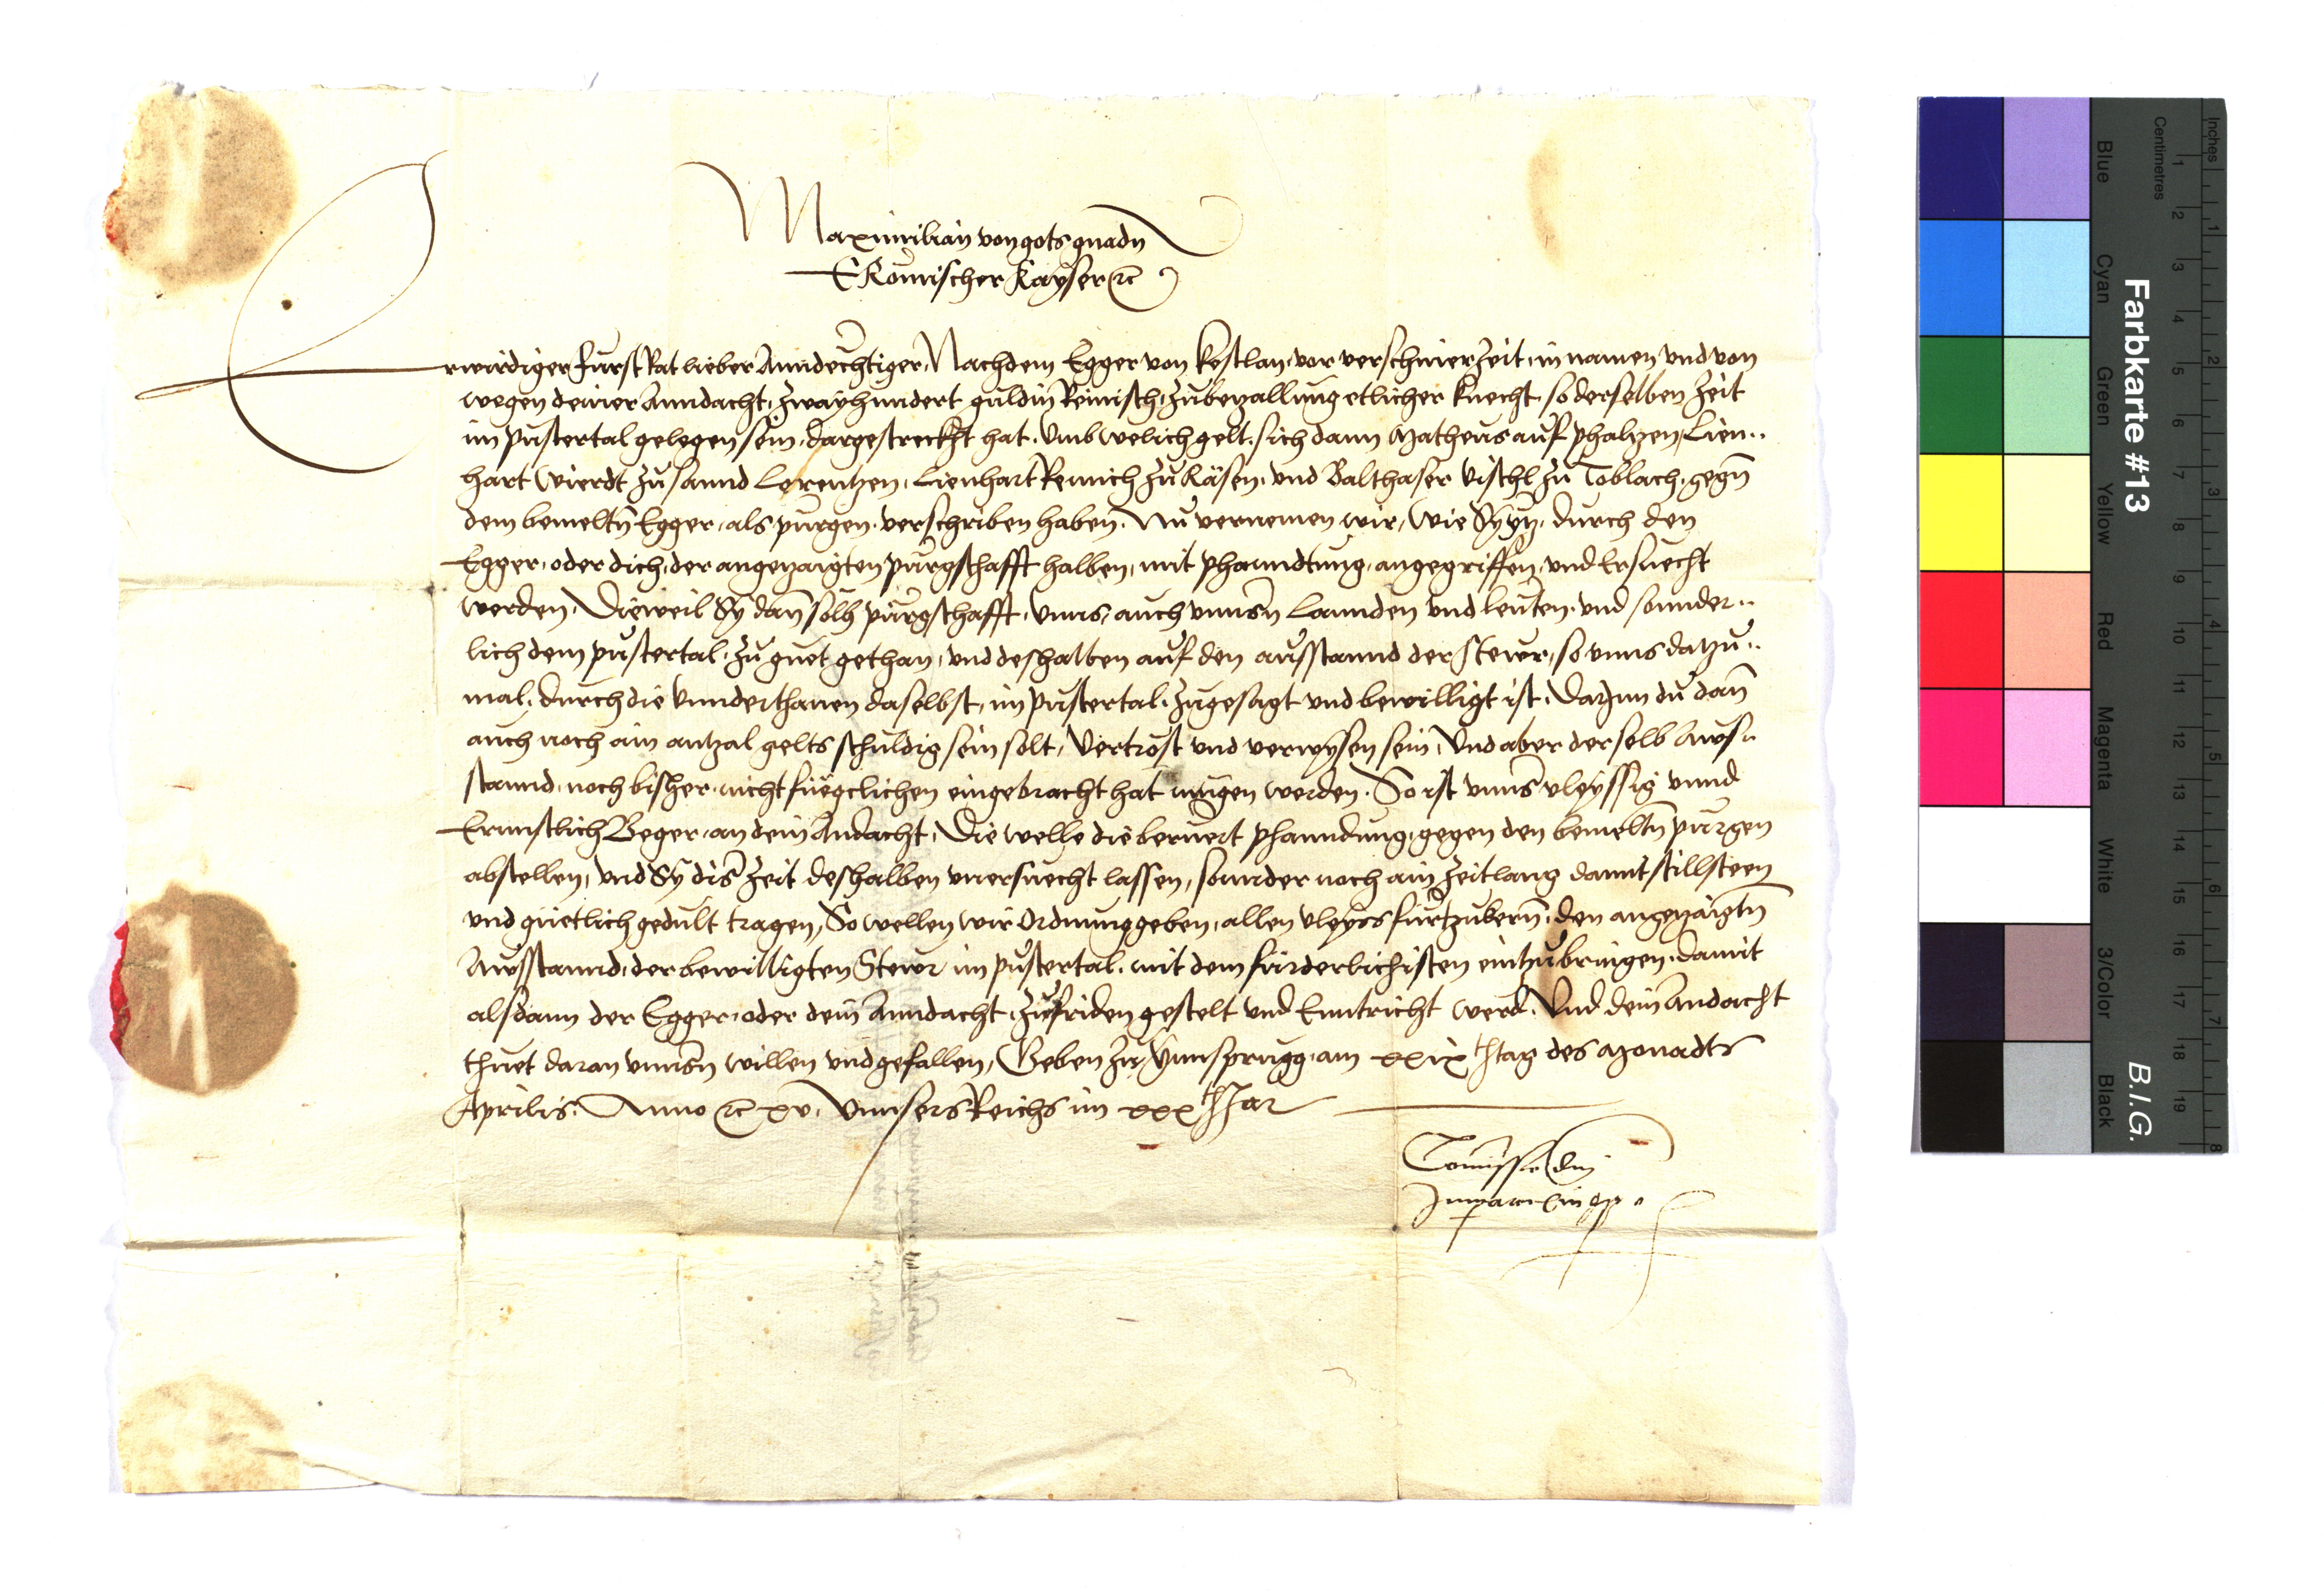 Maximilian von gots gnadn
E Römischer Kayser etc
Erwirdiger Fürst Rat lieber Anndechtiger, Nachdem Egger von Kestlan, vor verschiner Zeit, in namen und von
wegen deiner Anndacht, zwayhundert guldin Reinisch, zu bezallung etlicher knecht, so derselben Zeit
im pustertal gelegen sein, dargestreckht hat, Umb welich gelt, sich dann Matheus auf phalzen, Lien..
hart Wierdt zu sannd Lorentzen, Lienhart Rennich zu Räsen, und Balthaser Vischl zu Toblach, gegn
dem bemeltn Egger, als purgen verschriben haben. Nu vernemen wir, wie Sy yz, durch den
Egger, oder dich, der angezaigten purgschafft halben, mit phanndtung, angegriffen, und Ersuecht
werden, Dieweil Sy dan solh purgschafft, unns, auch unnsrn Lannden und leuten, und sonnder..
lich dem pustertal, zu guet gethan, und deshalben auf den ausstannd der Stewr, so unns datzu..
mal, durch die unnderthanen daselbst, im pustertal, zugesagt und bewilligt ist, Darjnn du dan
auch noch ain antzal gelts schuldig sein solt, Vertröst und verwysen sein, Und aber derselb Aws..
stannd, noch bisher, nicht füegclichen eingebracht hat mugen werden. So ist unns vleyssig unnd
Ernnstlich Beger, an dein Andacht, Die welle die beruert phanndung, gegen den bemeltn purgen
abstellen, und Sy diser Zeit deshalben unersuecht lassen, sonnder noch ain Zeitlang damit stillsteen
und guetlich gedult tragen, So wellen wir Ordnung geben, allen vleyss furtzukern, den angezaigtn
Ausstannd, der bewilligten Stewr im pustertal, mit dem furderlichisten eintzubringen, damit
alsdann der Egger, oder dein Anndacht, zufriden gestelt und Enntricht werd. Und dein Andacht
thuet daran unnsrn willen und gefallen, Geben zu Ynnsprugg, am xxix tag des Monadts
Aprilis. Anno etc xv. Unnsers Reichs im xxx Jar
Comissio dni
Imperatoris pp
Farbkarte #13
B.I.G.
Inches
Centimetres
1 2 3 4 5 6 7 8
1 2 3 4 5 6 7 8 9 10 11 12 13 14 15 16 17 18 19
Blue
Cyan
Green
Yellow
Red
Magenta
White
3/Color
Black